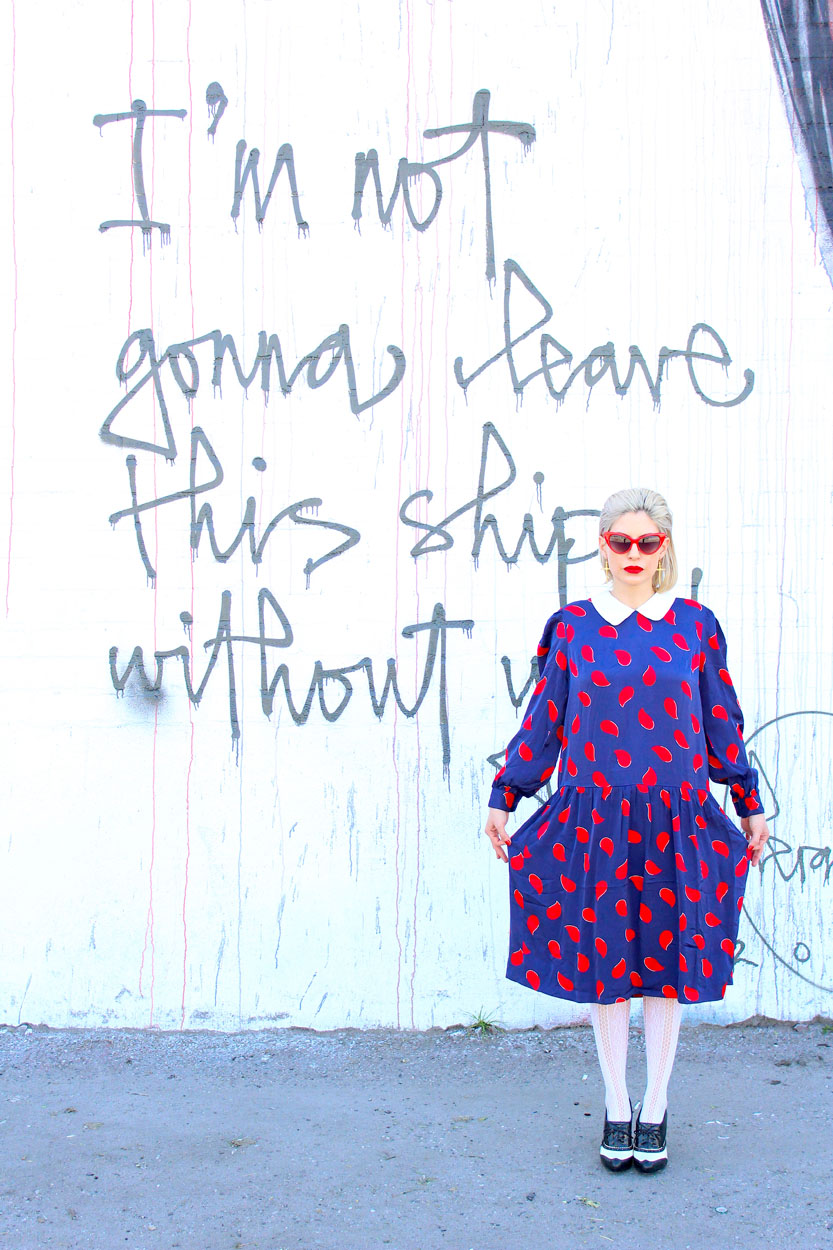 I'm not
gonna leave
this ship
without